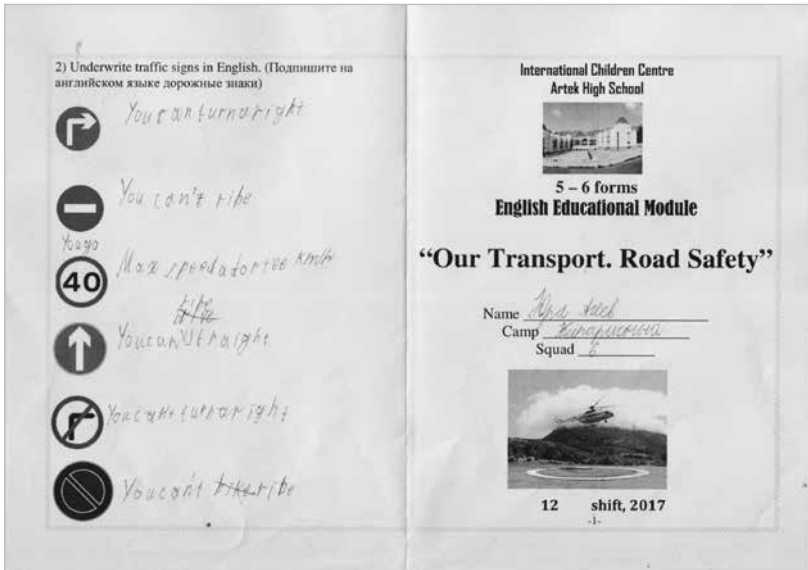 2) Underwrite traffic signs in English. (Подпишите на
английском языке дорожные знаки)
You can turn a right
You can't ribe
You go
40
Max speed km/h
ribe
You can straight
You can't turn a right
You can't bike ribe
International Children Centre
Artek High School
5 – 6 forms
English Educational Module
“Our Transport. Road Safety”
Name Юра
Camp Кипарисовый
Squad 6
12 shift, 2017
-1-